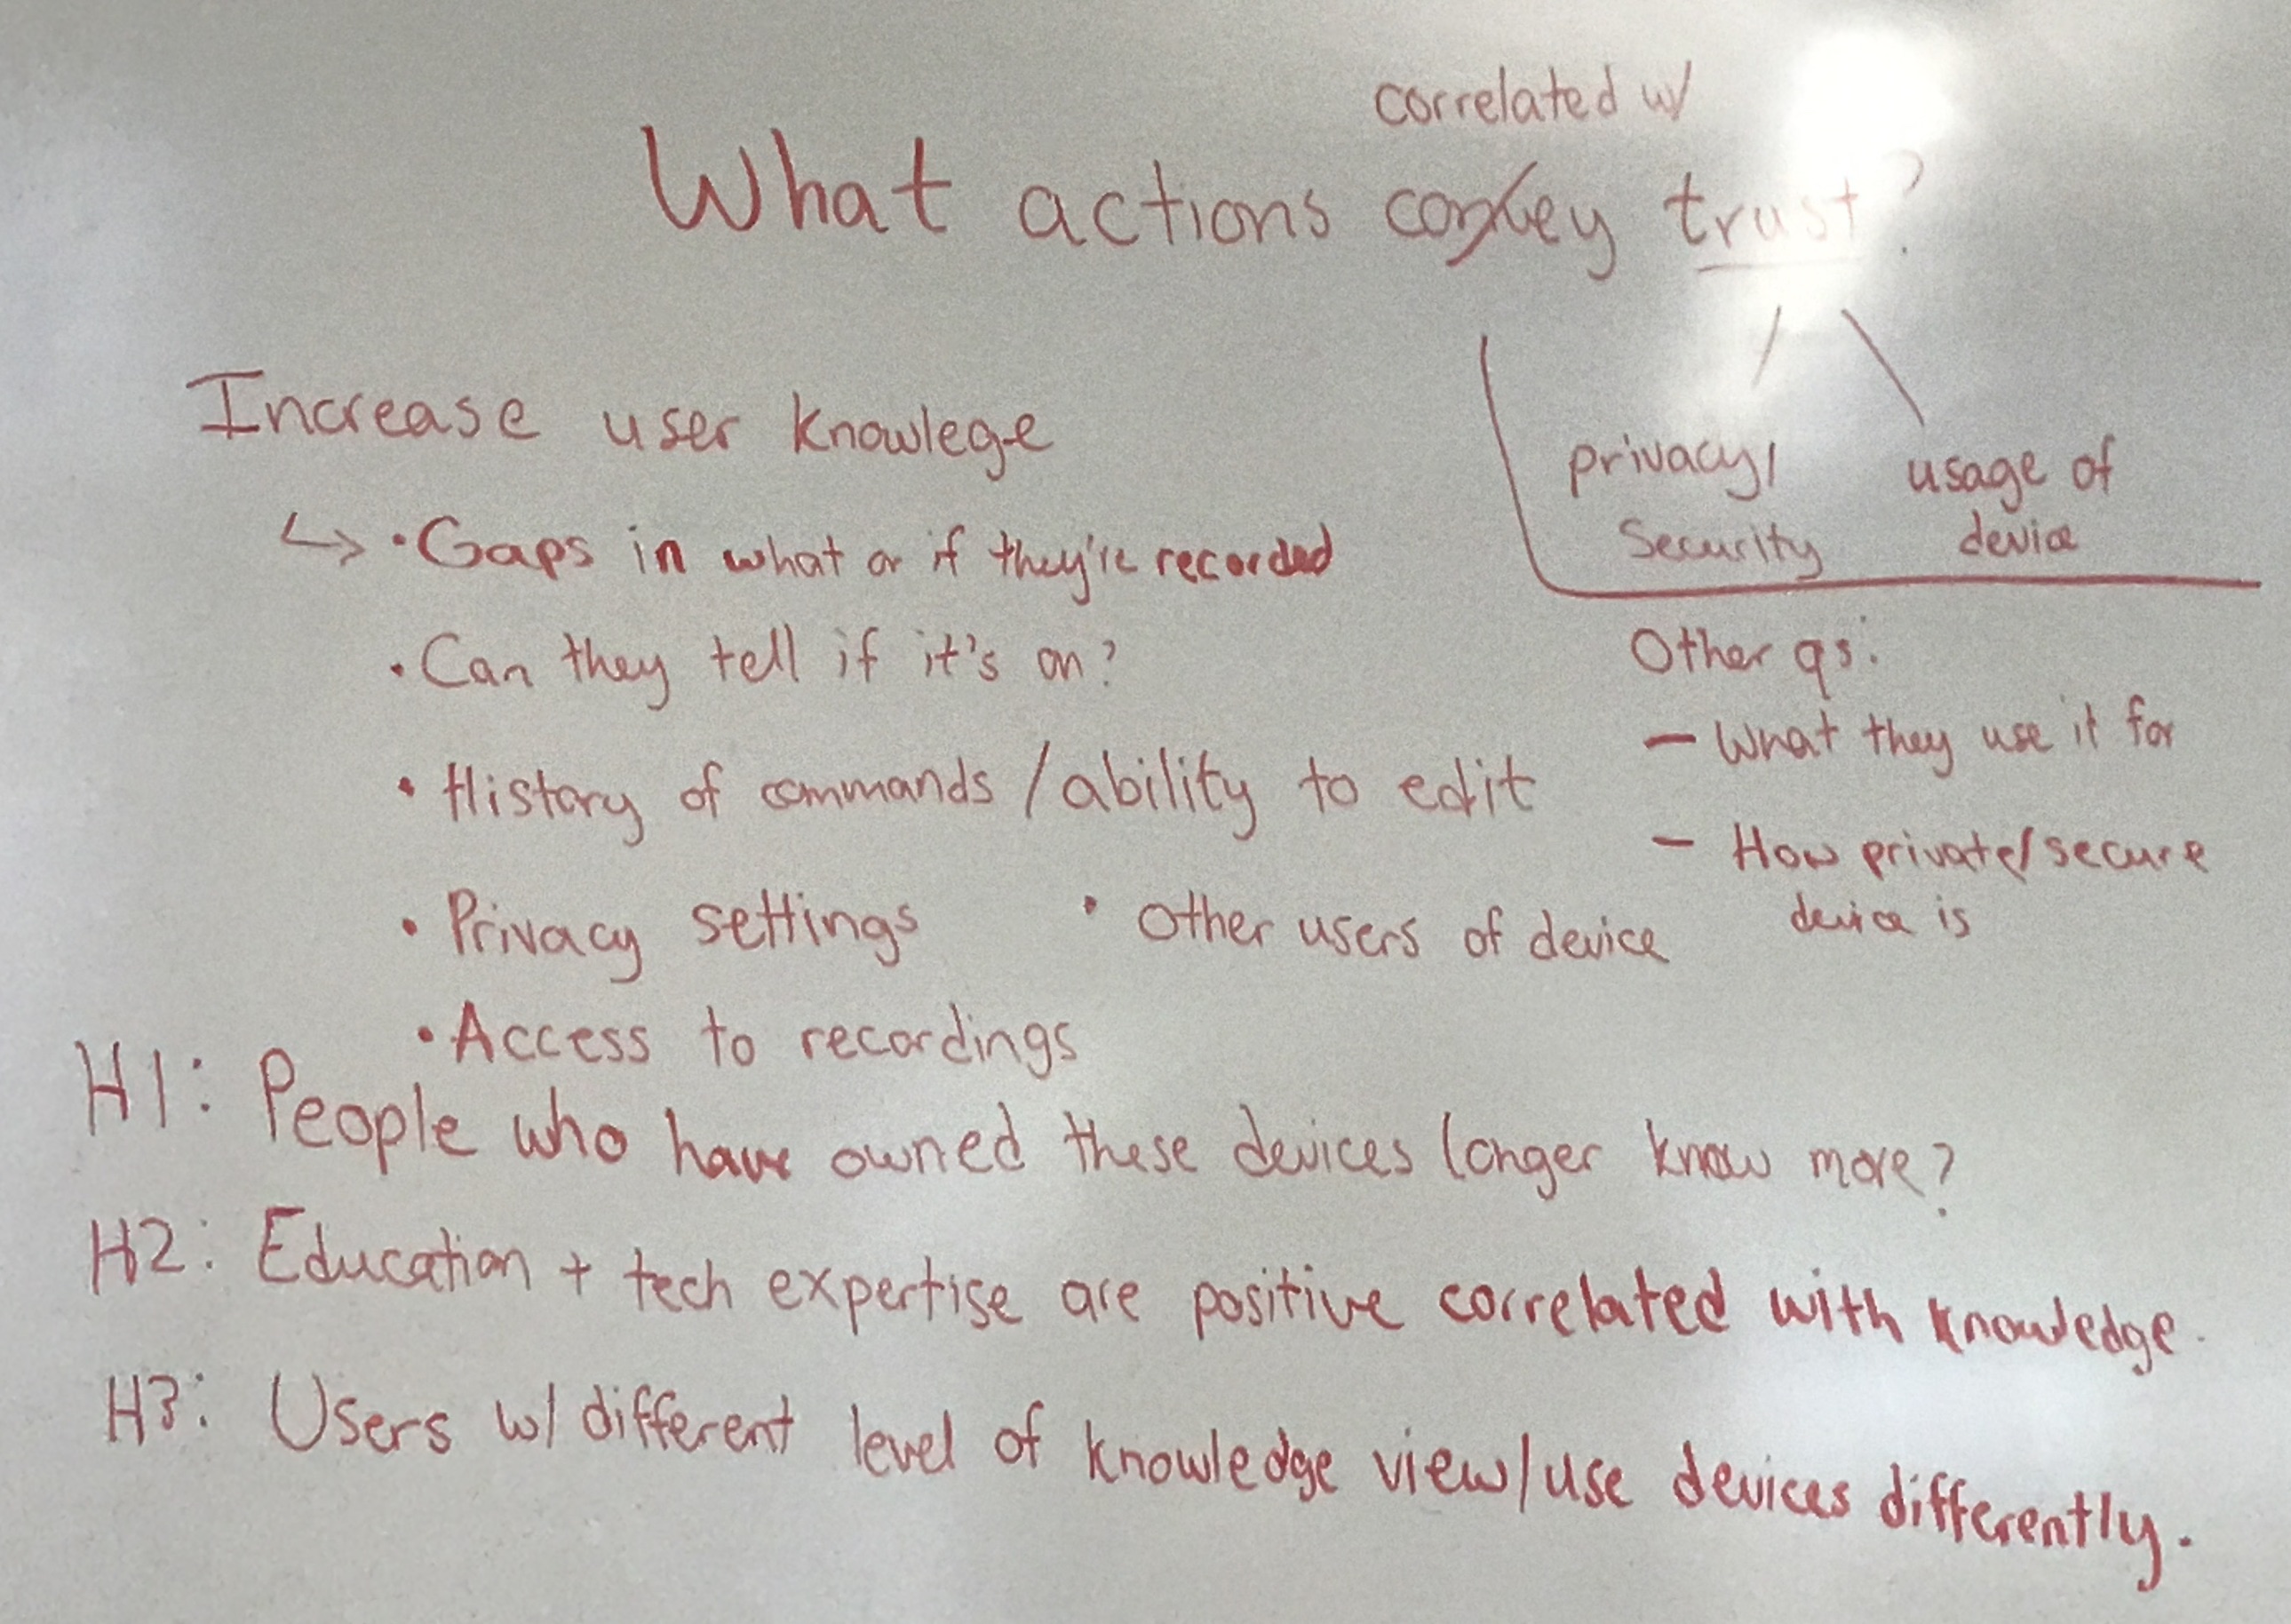 correlated w/
What actions convey trust?
privacy/
Security
usage of
device
Increase user knowlege
↳ • Gaps in what or if they're recorded
• Can they tell if it's on?
• History of commands / ability to edit
• Privacy settings
• Other users of device
• Access to recordings
Other qs:
– What they use it for
– How private/secure
device is
H1: People who have owned these devices longer know more?
H2: Education + tech expertise are positive correlated with knowledge.
H3: Users w/ different level of knowledge view/use devices differently.